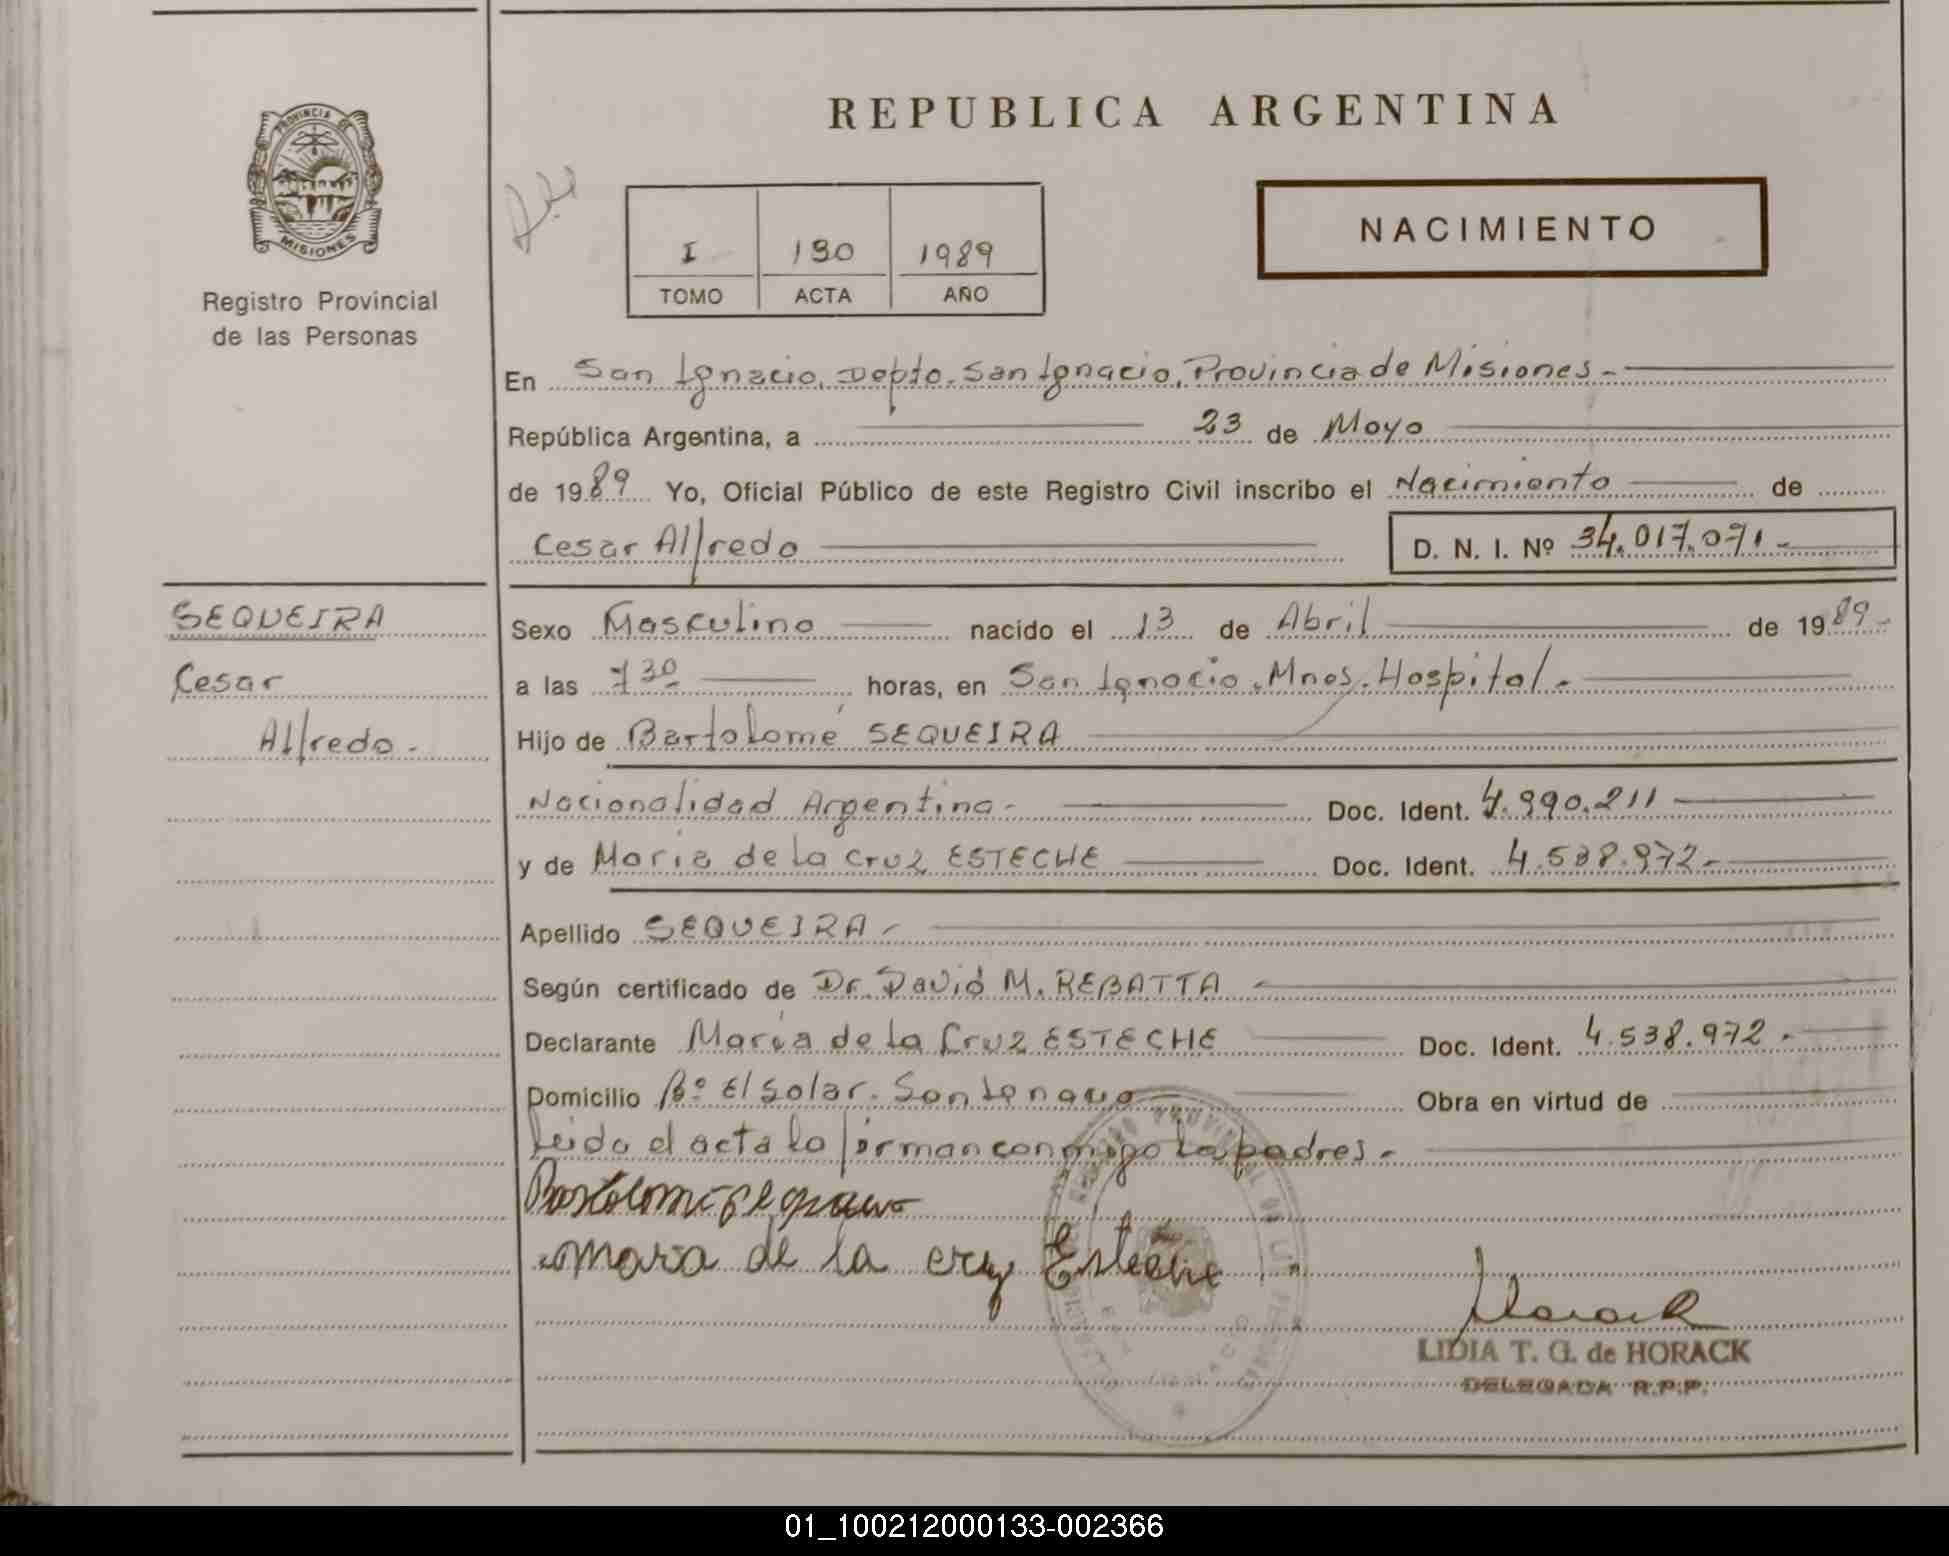 REPUBLICA ARGENTINA
PROVINCIA DE
MISIONES
Registro Provincial
de las Personas
I 190 1989
TOMO ACTA AÑO
NACIMIENTO
En San Ignacio, Depto. San Ignacio, Provincia de Misiones -
República Argentina, a 23 de Mayo
de 1989 Yo, Oficial Público de este Registro Civil inscribo el Nacimiento de
Cesar Alfredo D. N. I. Nº 34.017.071.-
SEQUEIRA
Cesar
Alfredo.-
Sexo Masculino nacido el 13 de Abril de 1989-
a las 7 30 horas, en San Ignacio, Mnes. Hospital.-
Hijo de Bartolomé SEQUEIRA
Nacionalidad Argentina- Doc. Ident. 7.990.211
y de María de la Cruz ESTECHE Doc. Ident. 4.538.972-
Apellido SEQUEIRA-
Según certificado de Dr. David M. REBATTA
Declarante María de la Cruz ESTECHE Doc. Ident. 4.538.972-
Domicilio Bº El Solar. San Ignacio Obra en virtud de
Leida el acta lo firman conmigo los padres.-
Bartolome
Maria de la cruz Esteche
Horack
LIDIA T. G. de HORACK
DELEGADA R.P.P.
01_100212000133-002366